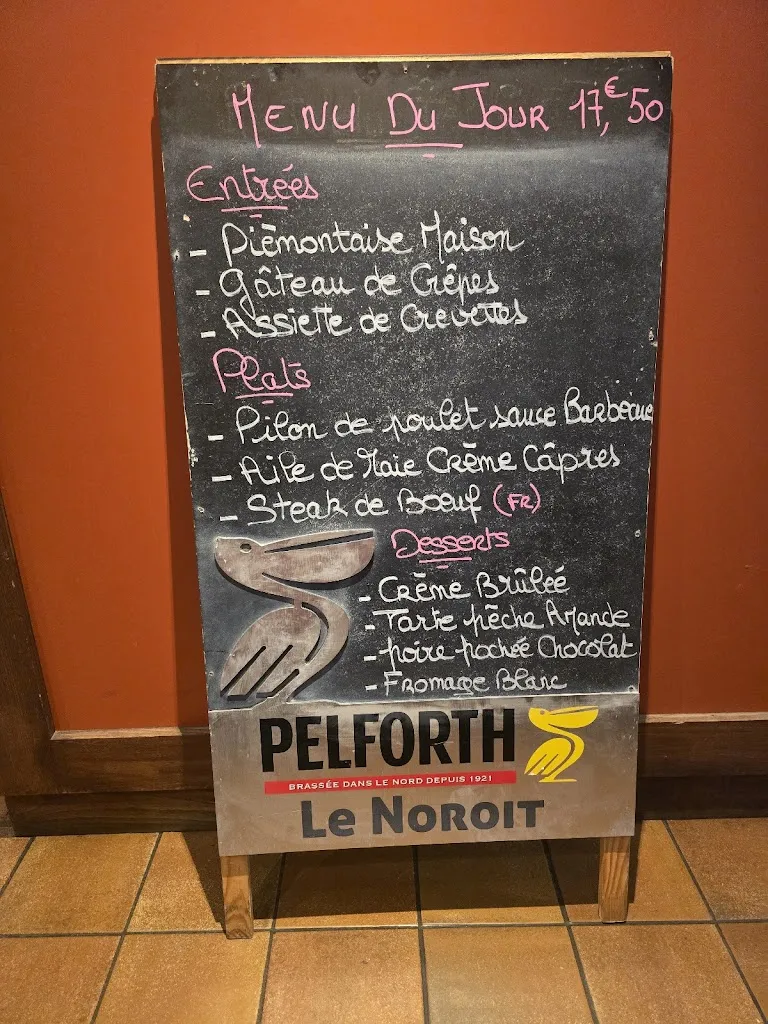 MENU DU JOUR 17,€50
Entrées
- Piémontaise Maison
- Gâteau de Crêpes
- Assiette de Crevettes
Plats
- Pilon de poulet sauce Barbecue
- Aile de Raie Crème Câpres
- Steak de Boeuf (FR)
Desserts
- Crème Brûlée
- Tarte pêche Amande
- poire pochée Chocolat
- Fromage Blanc
PELFORTH
BRASSÉE DANS LE NORD DEPUIS 1921
Le NOROIT